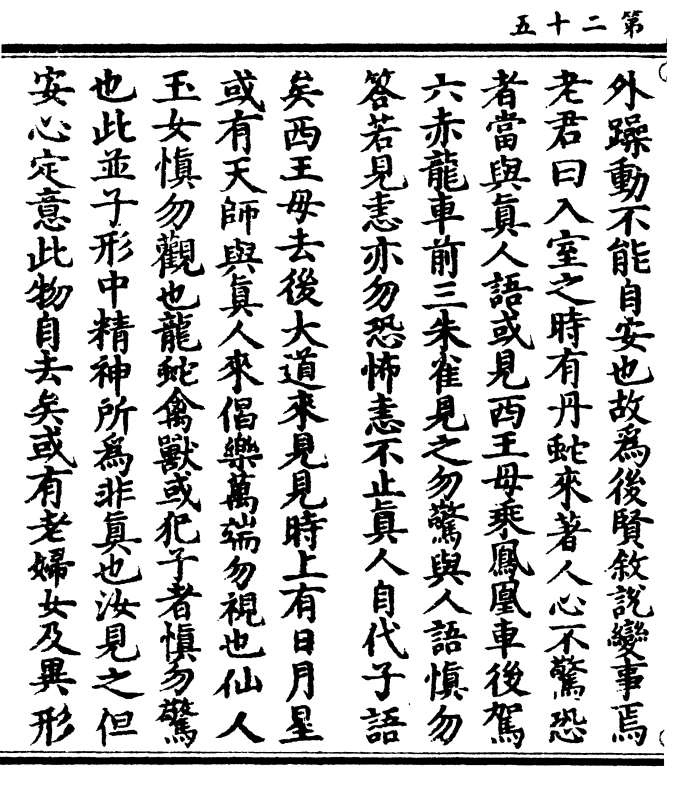 第二十五
外躁動不能自安也故為後賢敘說變事焉
老君曰入室之時有丹蛇來著人心不驚恐
者當與眞人語或見西王母乘鳳凰車後駕
六赤龍車前三朱雀見之勿驚與人語愼勿
答若見恚亦勿恐怖恚不止眞人自代子語
矣西王母去後大道來見見時上有日月星
或有天師與眞人來倡樂萬端勿視也仙人
玉女愼勿觀也龍蛇禽獸或犯子者愼勿驚
也此並子形中精神所為非眞也汝見之但
安心定意此物自去矣或有老婦女及異形